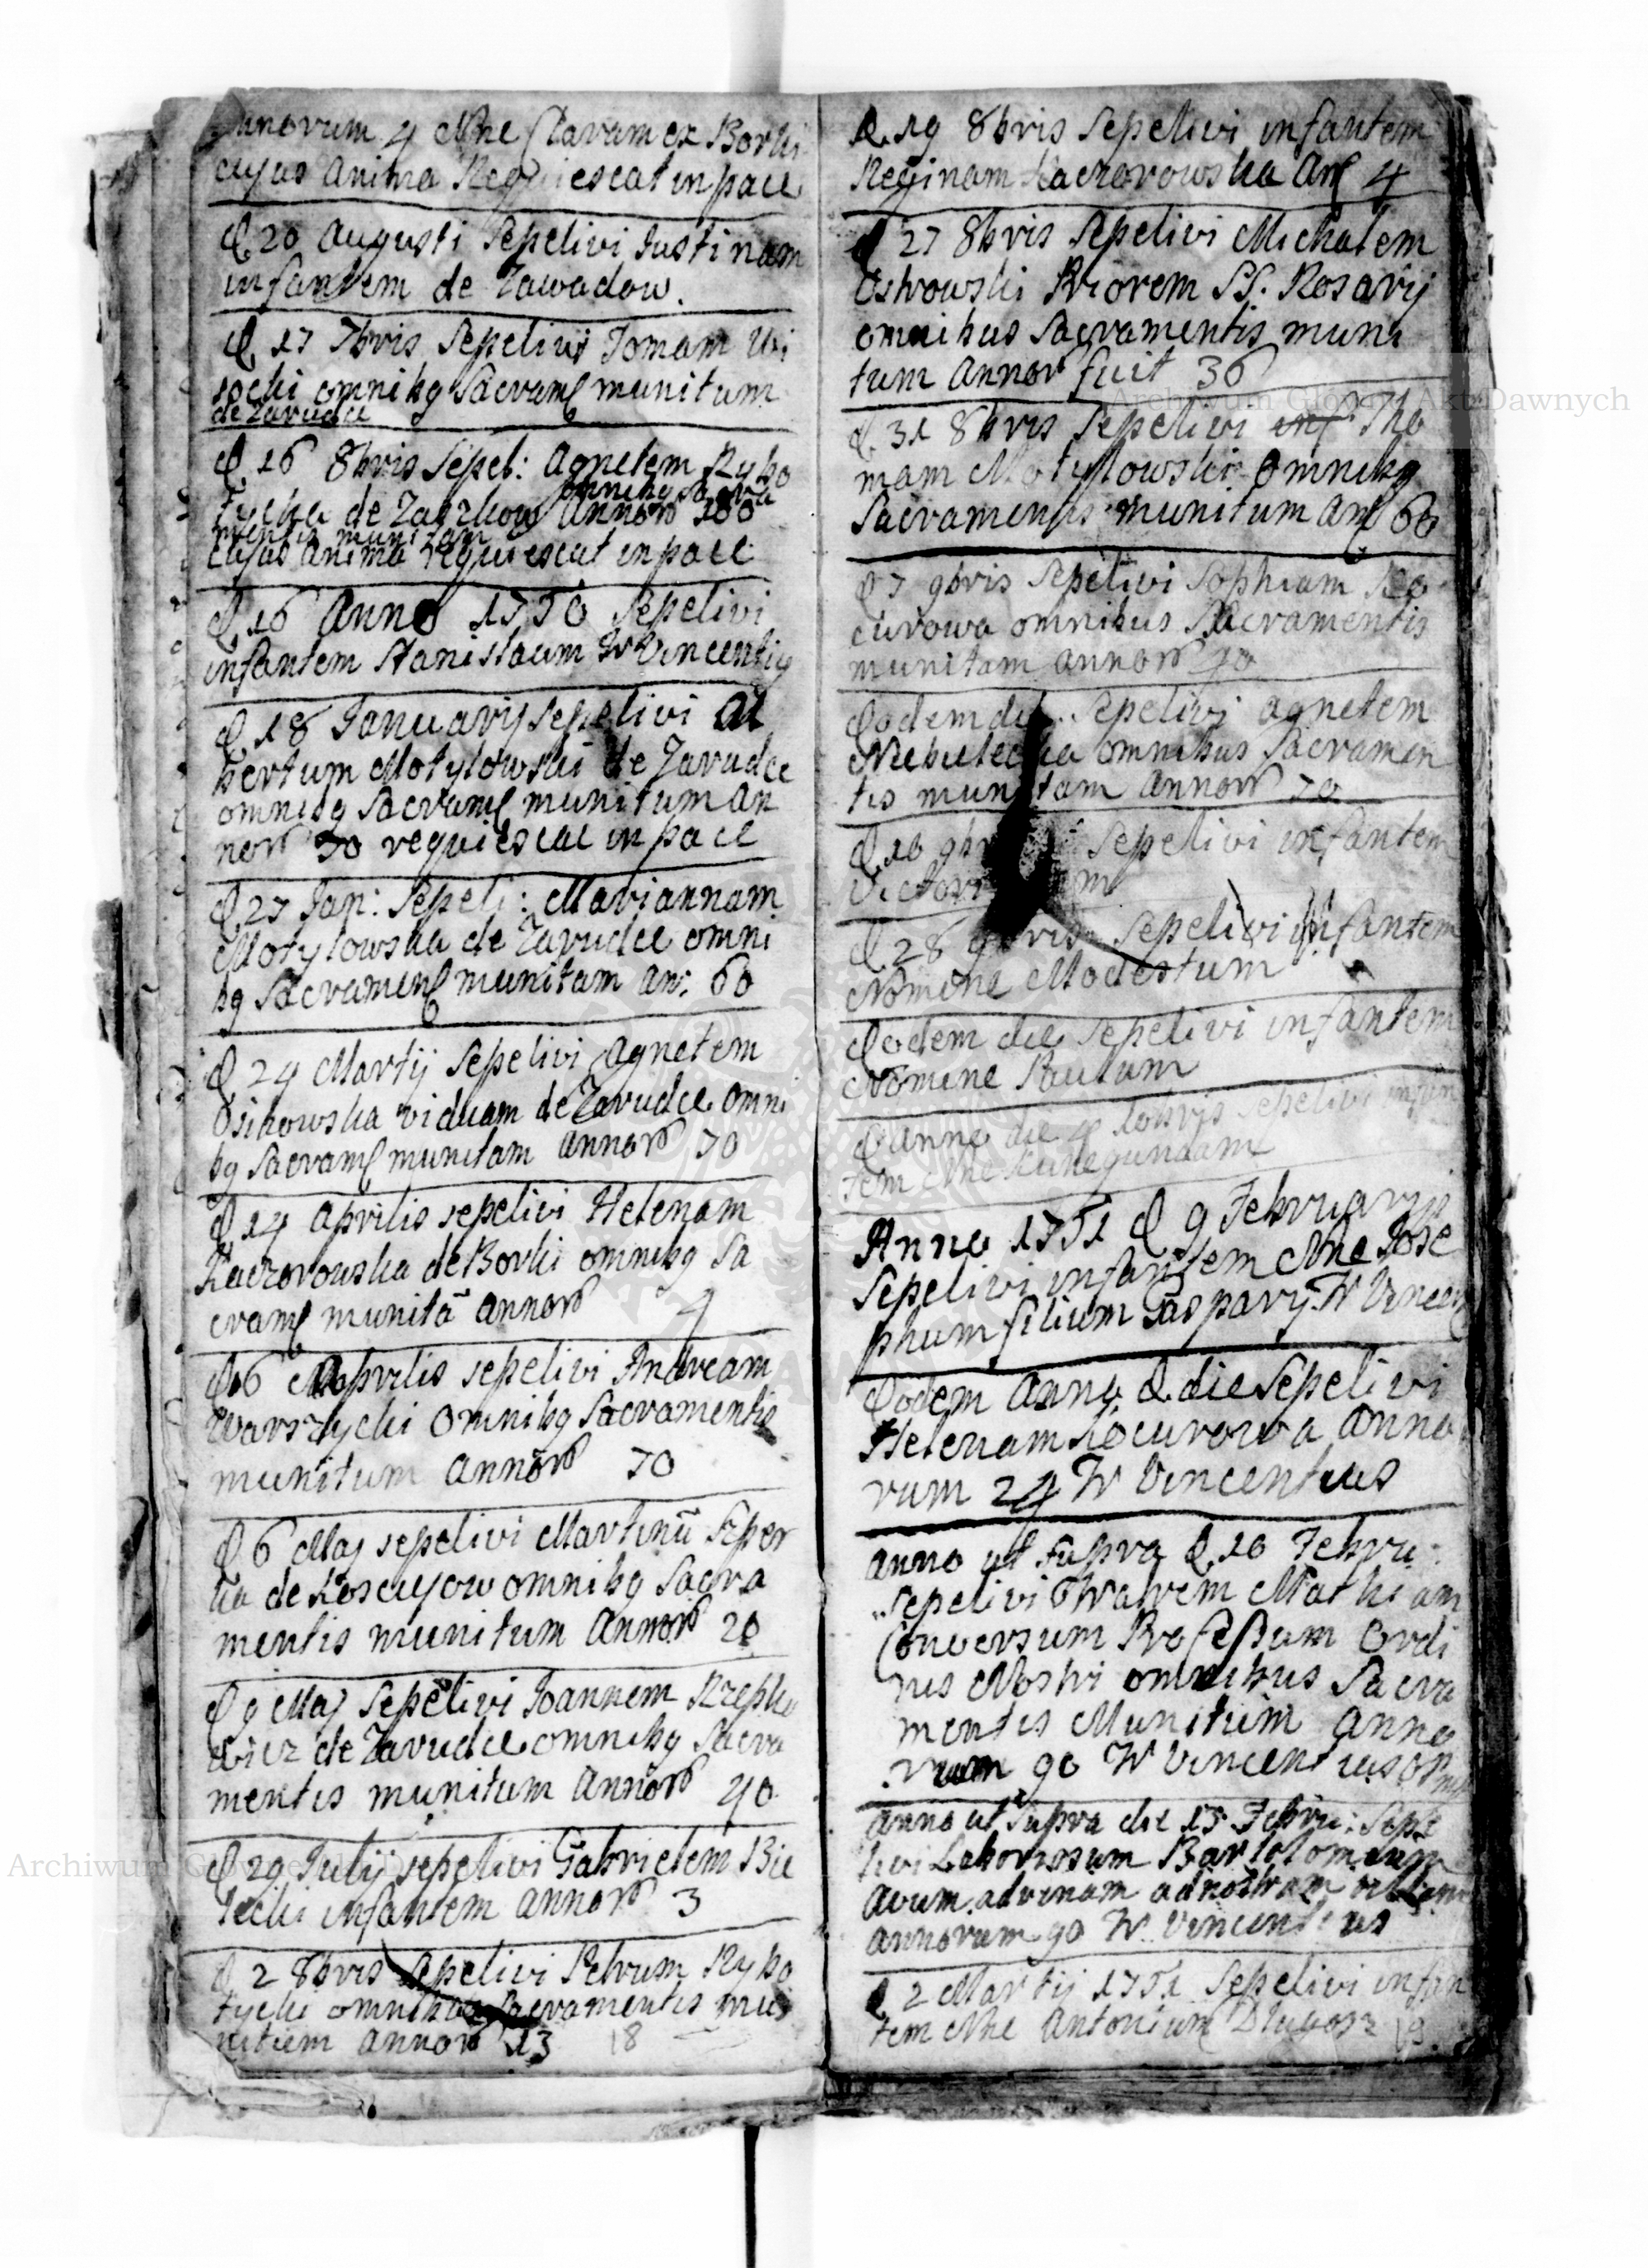 Annorum 4 Nne Claram ex Borki
cujus Anima Requiescat in pace
D. 20 Augusti Sepelivi Justinam
infantem de Zawadow.
D. 17 7bris Sepelivi Tomam Wi
socki omnibg Sacram munitum
de Zarudcze
D. 16 8bris Sepel: Agnetem Rybo
tycka de Annor 100
omnibg Sacra
mentis munitam
cujus Anima requiescat in pace
D. 16 Anno 1750 Sepelivi
infantem Stanislaum W Vincentig
D. 18 Januarij Sepelivi Al
bertum Motylowski de Zarudce
omnibg Sacram munitum An
nor 70 requiescat in pace
D. 27 Jan: Sepeli: Mariannam
Motylowska de Zarudce omni
bg Sacramen munitam an: 60
D. 24 Martij Sepelivi Agnetem
Osikowska viduam de Zarudce omni
bg Sacram munitam Annor 70
D. 14 Aprilis sepelivi Helenam
Kaczorowska de Borki omnibg Sa
cram munitã Annor 4
Aprilis sepelivi Andream
Warszycki omnibg Sacramentis
munitum Annor 70
D. 6 Maj sepelivi Martinũ
de omnibg Sacra
mentis munitum Annor 20
D. 9 Maj Sepelivi Joannem Krepko
wicz de Zarudce omnibg Sacra
mentis munitum Annor 40
D. 29 Julij sepelivi Gabrielem Bie
lecki infantem Annor 3
D. 2 8bris Sepelivi Petrum Rybo
tycki omnibus Sacramentis mu
nitum Annor 13
18
D. 19 8bris Sepelivi infantem
Reginam Kaczorowska An 4
D. 27 8bris Sepelivi Michalem
Ostrowski Priorem SS. Rosarij
omnibus Sacramentis muni
tum Annor fuit 36
D. 31 8bris Sepelivi inf Tho
mam Motylowski omnibg
Sacramentis munitum An 60
D. 7 9bris Sepelivi Sophiam Ko
curowa omnibus Sacramentis
munitam annor 70
Eodem die Sepelivi Agnetem
omnibus Sacramen
tis munitam Annor 70
D. 10 9bris Sepelivi infantem
D. 28 9bris Sepelivi infantem
Nomine Modestum
Eodem die Sepelivi infantem
Nomine Paulum
Anno die 4 Sepelivi infan
tem Nne Kunegundam
Anno 1751 D 9 Februarij
Sepelivi infantem Nne Jose
phum filium Gasparij W Vincen
Eodem Anno & die Sepelivi
Helenam Kocurowa Anno
rum 24 W Vincentius
Anno ut supra D. 10 Febru:
Sepelivi Fratrem Mathiam
Conversum Profeßum Ordi
nis Nostri omnibus Sacra
mentis Munitum Anno
rum 90 W Vincentius
Anno ut Supra die 15 Febru: Sepe
livi Laboriosum Bartolomeum
advenam ad nostram villam
Annorum 90 W. Vincentius
D. 2 Martij 1751 Sepelivi infan
tem Nne Antonium Dlugosz
Archiwum Główne Akt Dawnych
Archiwum Główne